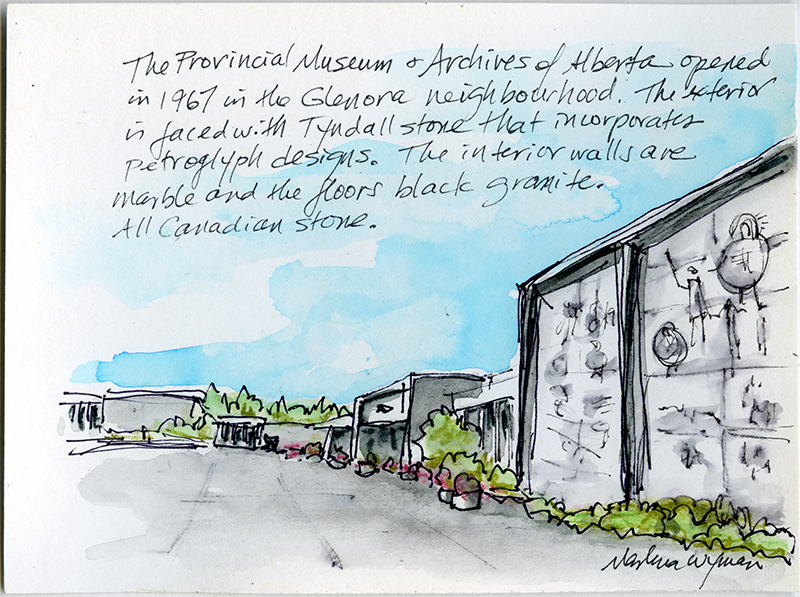 The Provincial Museum & Archives of Alberta opened
in 1967 in the Glenora neighbourhood. The exterior
is faced with Tyndall stone that incorporates
petroglyph designs. The interior walls are
marble and the floors black granite.
All Canadian stone.
Marlena Wyman